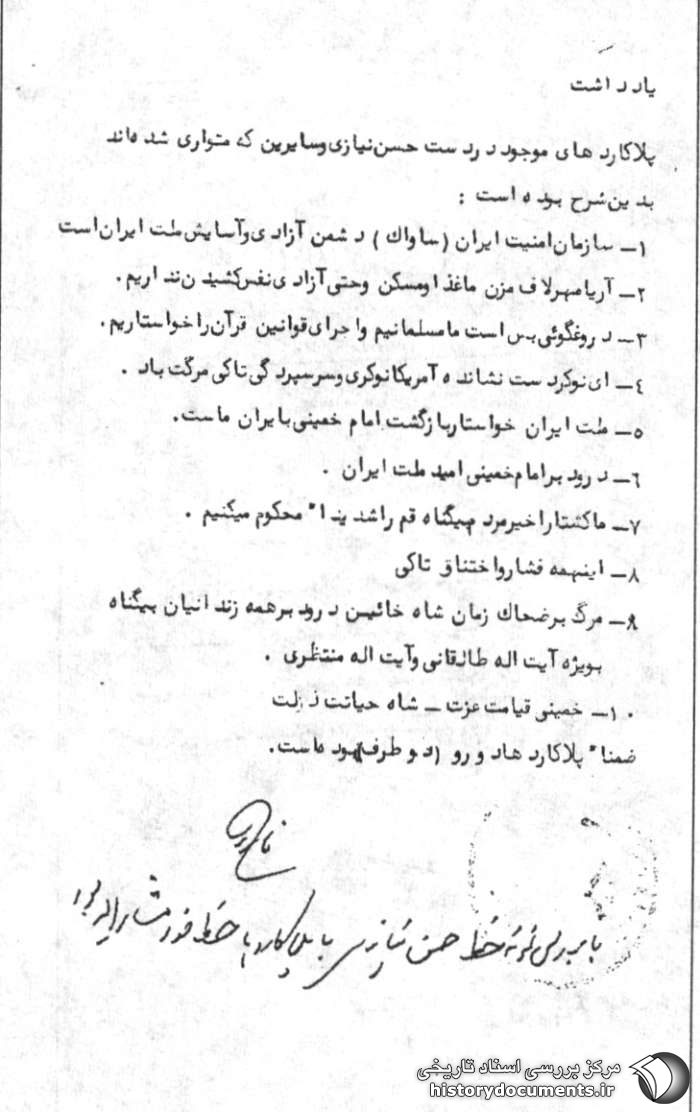 یاد داشت
پلاکارد های موجود در دست حسن نیازی و سایرین که متواری شده اند
بدین شرح بوده است :
۱ـ سازمان امنیت ایران (ساواک ) دشمن آزادی و آسایش ملت ایران است
۲ـ آریامهر لاف مزن ما غذا و مسکن وحتی آزادی نفس کشیدن نداریم.
۳ـ دروغگوئی بس است ما مسلمانیم و اجرای قوانین قرآن را خواستاریم.
٤ـ ای نوکر دست نشانده آمریکا نوکری و سرسپردگی تاکی مرگت باد .
۵ـ ملت ایران خواستار بازگشت امام خمینی بایران ماست.
٦ـ درود بر امام خمینی امید ملت ایران .
۷ـ ما کشتار اخیر مردم بیگناه قم را شدیدا" محکوم میکنیم .
۸ـ اینهمه فشار و اختناق تاکی
۸ـ مرگ بر ضحاک زمان شاه خائین درود بر همه زندانیان بیگناه
بویژه آیت اله طالقانی و آیت اله منتظری .
۱۰ـ خمینی قیامت عزت ـ شاه حیاتت ذلت
ضمنا" پلاکارد ها دو رو (دو طرف) بوده است.
با بررسی نمونه خط حسن نیازی با پلاکاردها خط خود مشارالیه بود
مرکز بررسی اسناد تاریخی
historydocuments.ir